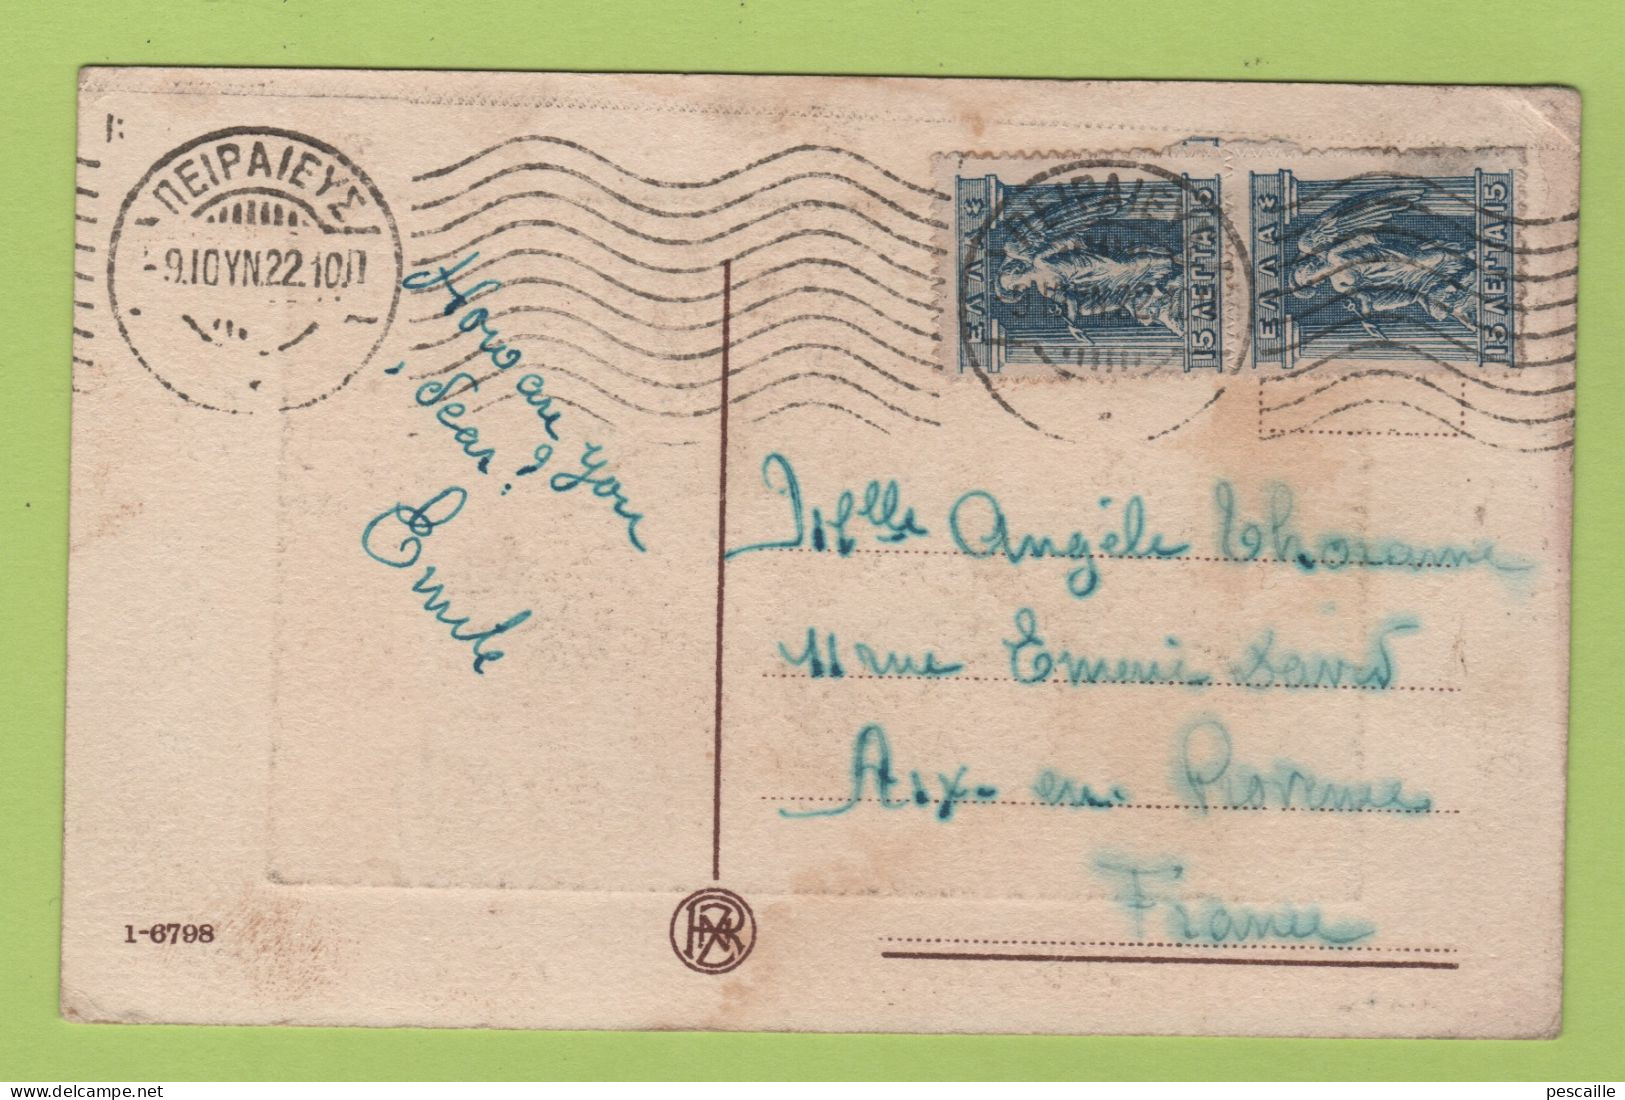 ΠΕΙΡΑΙΕΥΣ
-9.ΙΟΥΝ.22.10Π
ΠΕΙΡΑΙΕΥΣ
ΕΛΛΑΣ
15 ΛΕΠΤΑ 15
ΕΛΛΑΣ
15 ΛΕΠΤΑ 15
How are you
, dear?
Emile
Melle Angèle Thorame
11 rue Emeric David
Aix-en-Provence
France
1-6798
pescaille